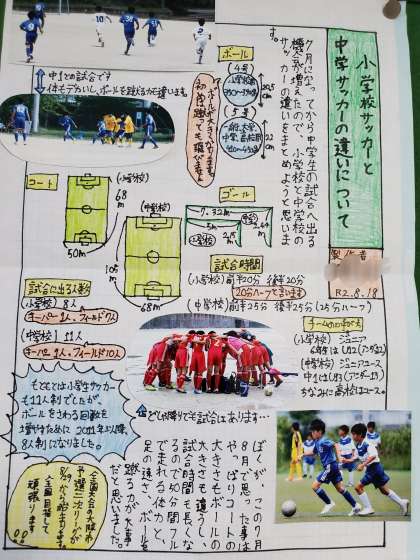 小学校サッカーと
中学サッカーの違いについて
製作者
R2.8.18
7月に入ってから中学生の試合へ出る
機会が増えたので、小学校と中学校の
サッカーの違いをまとめようと思いま
す。
ボール
(4号)
小学校
20.5cm
(5号)
一般、大学
中学、高校用
410〜450g
22cm
ボールが大きくなります。
初めは蹴っても飛びません
中1との試合です
体もデカいし、ボールを蹴る力も違います
コート
(小学校)
68m
50m
(中学校)
105m
68m
ゴール
7.32m
(中学校)
2.44m
5m
2.15m
(小学校)
試合時間
(小学校)前半20分 後半20分
20分ハーフと言います
(中学校)前半25分 後半25分(25分ハーフ)
試合に出る人数
(小学校) 8人
キーパー1人、フィールド7人
(中学校) 11人
キーパー1人、フィールド10人
チームの呼び方
(小学校)ジュニア
6年生はU12(アンダー12)
(中学校)ジュニアユース
中1はU13(アンダー13)
ちなみに高校はユース。
もともとは小学生サッカー
も11人制でしたが、
ボールをさわる回数を
増やすために2011年より、
8人制になりました。
どしゃ降りでも試合はあります…
ぼくが、この7月
8月で思った事は
やっぱりコートの
大きさもボールの
大きさも違うし、
試合時間も長くな
るので50分間フル
でまれる体力と、
足の速さ、ボールを
蹴る力が大事
だと思いました。
全国大会の大阪市
予選二次リーグが
8/29から始まります。
全国目指して
頑張ります!!